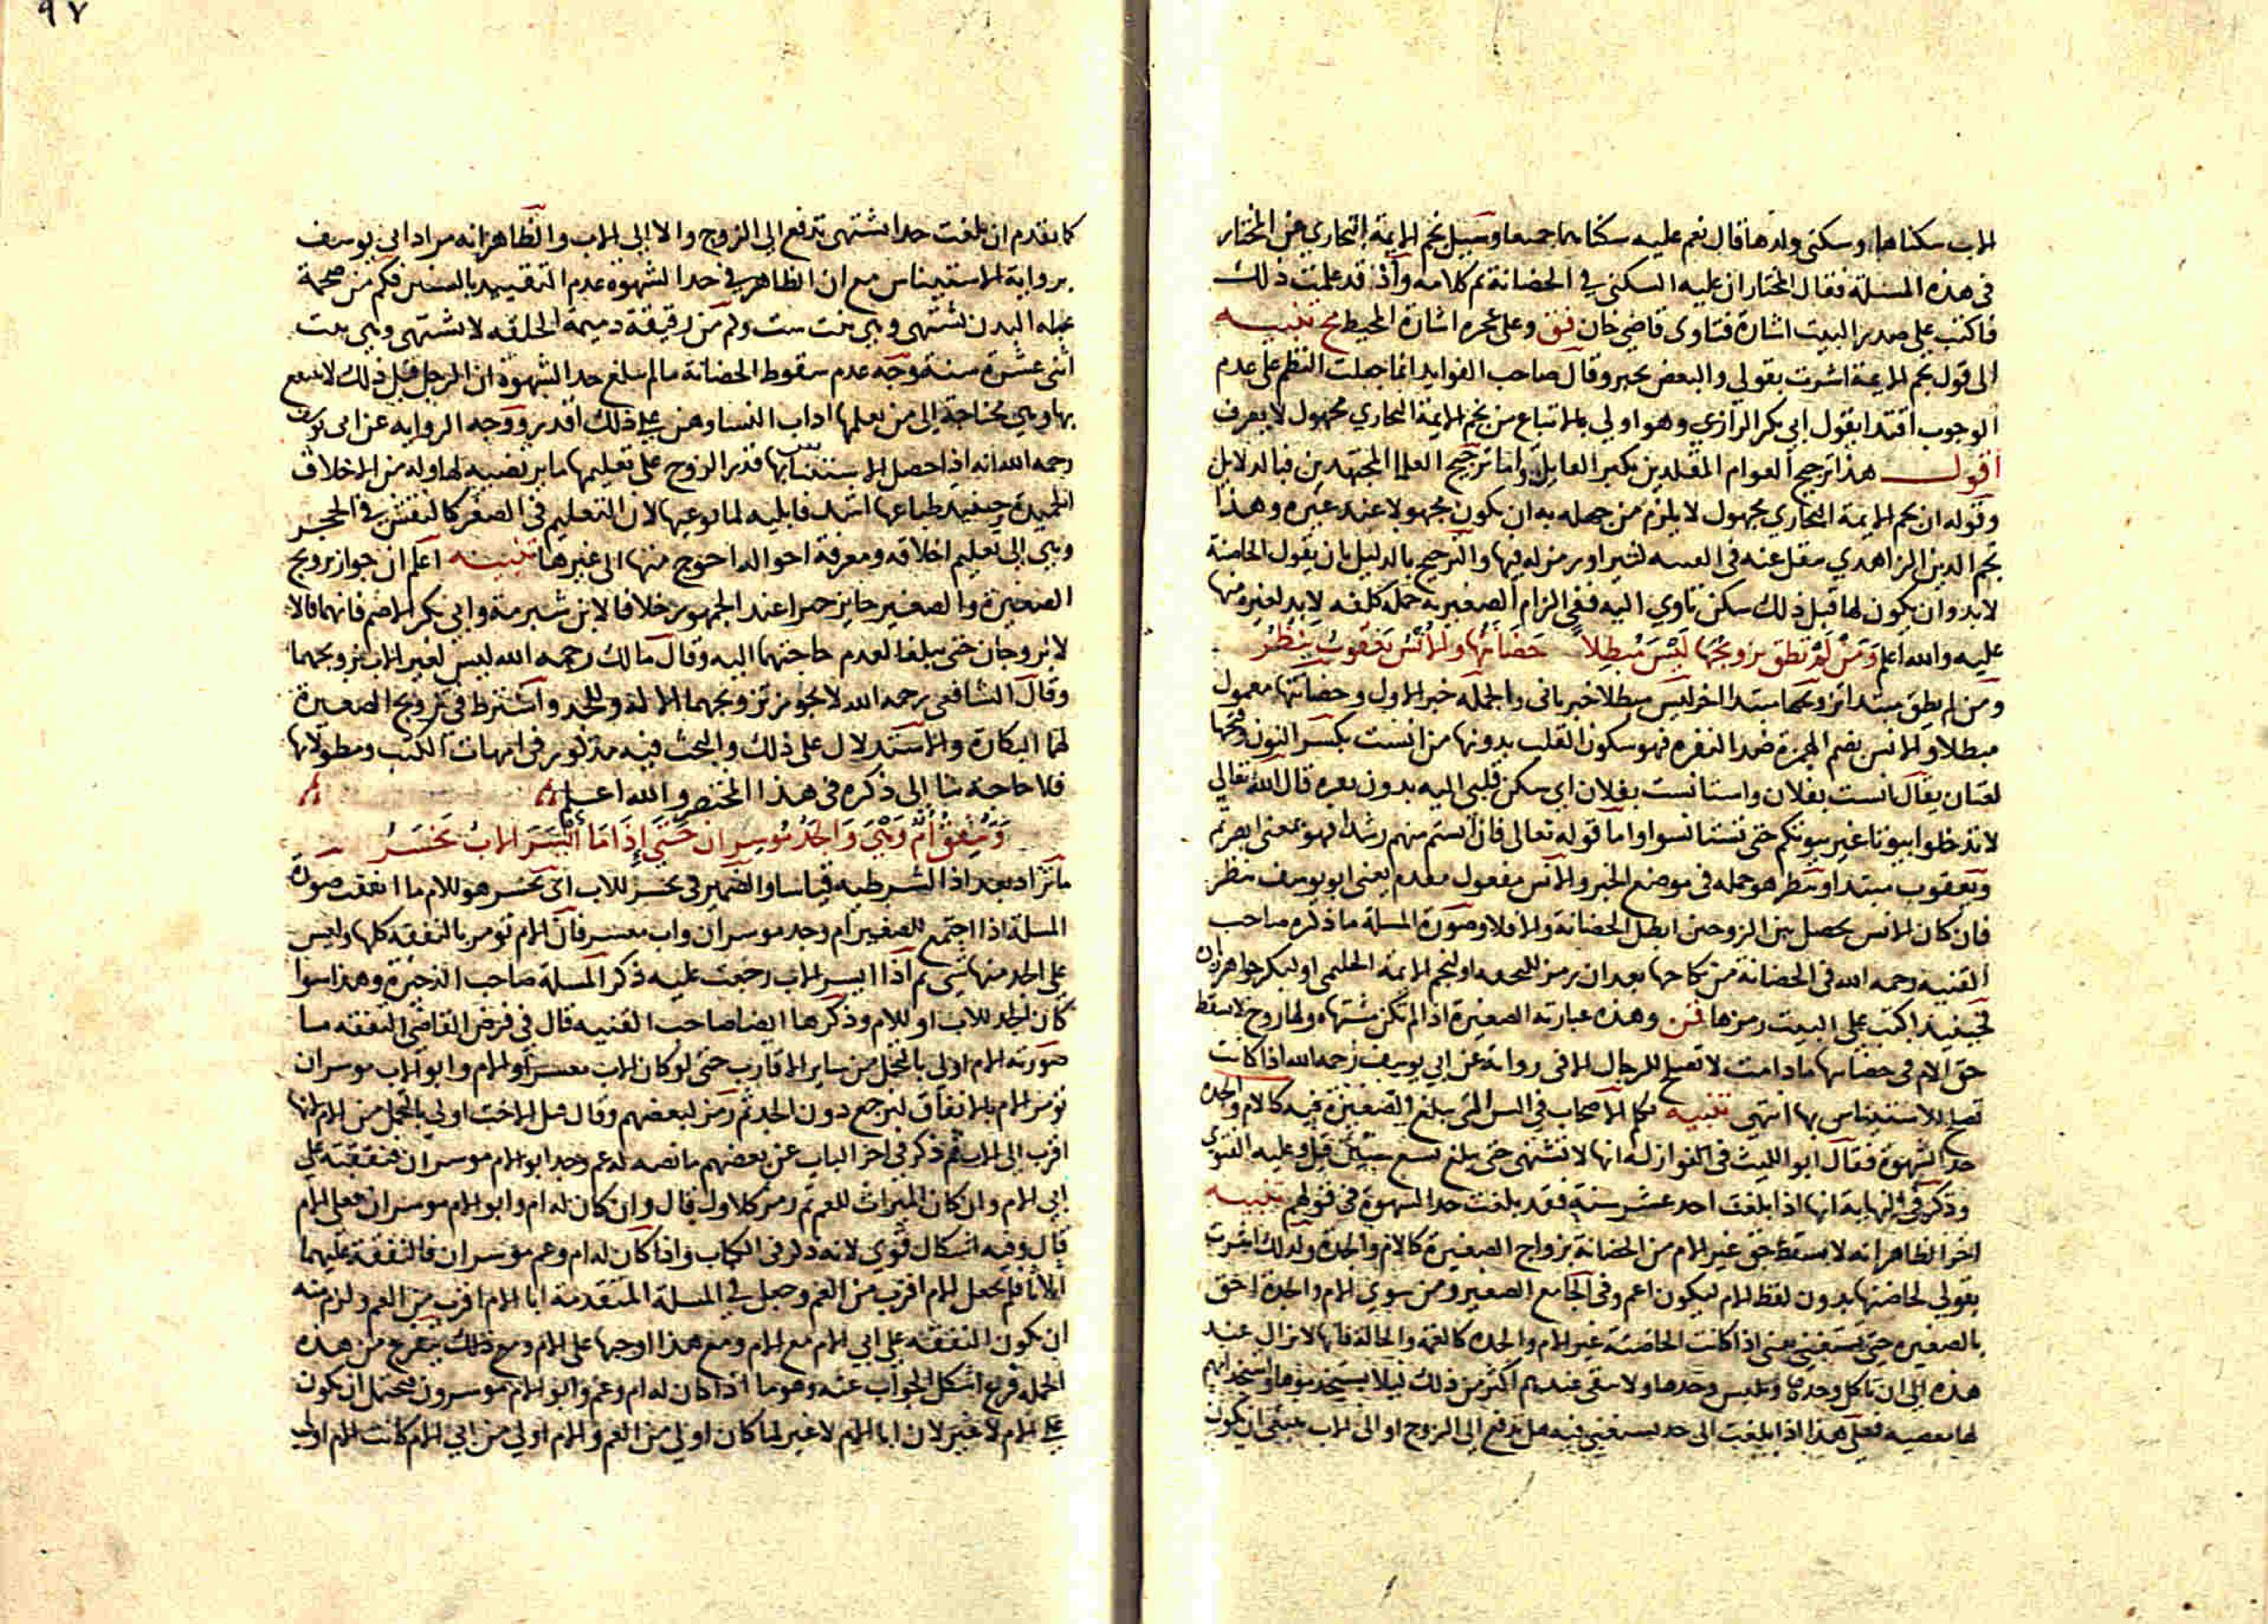 الاب سكناها وسكنى ولدها قال نعم عليه سكناهما جميعا وسيل نجم الايمة البخاري عن المختار
في هذه المسئلة فقال المختار ان عليه السكنى في الحضانة تم كلامه واذ قد علمت ذلك
فاكتب على صدر البيت اشارة فتاوى قاضي خان فق وعلى عجزه اشارة المحيط مح تنبيه
الى قول نجم الايمة اشرت بقولي والبعض يجبر وقال صاحب الفوايد انما جعلت النظم على عدم
الوجوب اقتدا بقول ابي بكر الرازي وهو اولى بالاتباع من نجم الايمة البخاري مجهول لا يعرف
اقول هذا ترجيح العوام المقلدين بكبر القايل واما ترجيح العلما المجتهدين فبالدلايل
وقوله ان نجم الايمة البخاري مجهول لا يلزم من جهله به ان يكون مجهولا عند غيره وهذا
نجم الدين الزاهدي ينقل عنه في القنية كثيرا ويرمز له فيها والترجيح بالدليل بان يقول الحاضنة
لابد وان يكون لها قبل ذلك سكن تاوي اليه ففي الزام الصغير به جملة كلفه لابد لغيره منها
عليه والله اعلم ومن لم تطق تزويجها ليس مبطلا حضانتها والانس يعقوب ينظر
ومن لم يطق مبتدا تزويجها مبتدا اخر ليس مبطلا خبر ثاني والجملة خبر الاول وحضانتها معمول
مبطلا والانس بضم الهمزة ضد النفرة فهو سكون القلب بدونها من انست بكسر النون وفتحها
لغتان يقال انست بفلان واستانست بفلان اي سكن قلبي اليه بدون نفره قال الله تعالى
لا تدخلوا بيوتا غير بيوتكم حتى تستانسوا واما قوله تعالى فان انستم منهم رشدا فهو بمعنى ابصرتم
ويعقوب مبتدا وينظر هو جمله في موضع الخبر والانس مفعول مقدم يعنى ابو يوسف ينظر
فان كان الانس يحصل بين الزوجين ابطل الحضانة والا فلا وصورة المسلة ما ذكره صاحب
القنية رحمه الله في الحضانة من نكاحها بعد ان رمز اولنجم الايمة الحليمي او لبكر خواهرزاده
فحينيذ اكتب على البيت رمزها قن وهذه عبارته الصغيرة اذا لم تكن مشتهاه ولها زوج لا يسقط
حق الام في حضانتها ما دامت لا تصلح للرجال الا في رواية عن ابي يوسف رحمه الله اذا كانت
تصلح للاستيناس بها انتهى تنبيه تكلم الاصحاب في السن التي يبلغ الصغيرة فيه كالام والجدة
حد الشهوة فقال ابو الليث في النوازل انها لا تشتهى حتى يبلغ تسع سنين قيل وعليه الفتوى
وذكر في النهاية انها اذا بلغت احد عشر سنة فقد بلغت حد الشهوة في قولهم تنبيه
اخر الظاهر انه لا يسقط حق غير الام من الحضانة بزواج الصغيرة كالام والجدة ولذلك اشرت
بقولي لحاضنتها بدون لفظ الام ليكون اعم وفي الجامع الصغير ومن سوى الام والجدة احق
بالصغيره حتى تستغني يعنى اذا كانت الحاضنة غير الام والجده كالعمة والخالة فانها لا تزال عند
هذه الى ان تاكل وحدها وتلبس وحدها ولا تبقى عندهم اكثر من ذلك ليلا
فعلى هذا اذا بلغت الى حد يستغني فيه هل تدفع الى الزوج او الى الاب ينبغي ان يكون
كما تقدم ان بلغت حدا تشتهى تدفع الى الزوج والا الى الاب والظاهر انه مراد ابي يوسف
برواية الاستيناس مع ان الظاهر في حد الشهوة عدم التقييد بالسنين فكم من ضخمة
عبلة البدن تشتهى وهي بنت ست وكم من رقيقة دميمة الخلقه لا تشتهى وهي بنت
اثنى عشرة سنة ووجه عدم سقوط الحضانة ما لم تبلغ حد الشهوة ان الرجل قبل ذلك لا ينتفع
بها وهي محتاجة الى من يعلمها اداب النسا وهن على ذلك اقدر ووجه الروايه عن ابي يوسف
رحمه الله انه اذا حصل الاستيناس بها قدر الزوج على تعليمها ما يرتضيه لها وله من الاخلاق
الحميدة وحينيذ طباعها اشد قابليه لما توعيها لان التعليم في الصغر كالنقش في الحجر
وهي الى تعليم اخلاقه ومعرفة احواله احوج منها الى غيرها تنبيه اعلم ان جواز تزويج
الصغيرة والصغير جايز جبرا عند الجمهور خلافا لابن شبرمة وابي بكر الاصم فانهما قالا
لا يزوجان حتى يبلغا لعدم حاجتهما اليه وقال مالك رحمه الله ليس لغير الاب تزويجهما
وقال الشافعي رحمه الله لا يجوز تزويجهما الا له وللجد واشترط في تزويج الصغيرة
لهما البكارة والاستدلال على ذلك والبحث فيه مذكور في امهات الكتب ومطولاتها
فلا حاجة بنا الى ذكره في هذا المختصر والله اعلم
وتنفق ام وهي والجد موسران حتى اذا ما ايسر الاب تخسر
ما تزاد بعد اذا الشرطيه قياسا والضمير في تخسر للاب اي تخسر هو للام ما انفقت صورة
المسلة اذا اجتمع للصغير ام وجد موسران واب معسر فان الام تومر بالنفقه كلها وليس
على الجد منها شي ثم اذا ايسر الاب رجعت عليه ذكر المسلة صاحب الذخيرة وهذا سوا
كان الجد للاب او للام وذكرها ايضا صاحب القنيه قال في فرض القاضي النفقه ما
صورته الام اولى بالتحمل من ساير الاقارب حتى لو كان الاب معسرا والام وابو الاب موسران
تومر الام بالانفاق لترجع دون الجد ثم رمز لبعضهم وقال قيل الاخت اولى بالتحمل من الام لانها
اقرب الى الاب ثم ذكر في اخر الباب عن بعضهم ما نصه له عم وجد ابو الام موسران فنفقته على
ابي الام وان كان الميراث للعم ثم رمز كالاول قال وان كان له ام وابو الام موسران فعلى الام
قال وفيه اشكال قوي لانه ذكر في الكتاب واذا كان له ام وعم موسران فالنفقة عليهما
اثلاثا فلم يجعل الام اقرب من العم وجعل في المسلة المتقدمة ابا الام اقرب من العم ولزم منه
ان تكون النفقه على ابي الام مع الام ومع هذا اوجبها على الام ومع ذلك يتفرع من هذه
الجمله فرع اشكل الجواب عنه وهو ما اذا كان له ام وعم وابو الام موسرون فيحتمل ان يكون
على الام لا غير لان ابا الام لا غير لما كان اولى من العم والام اولى من ابي الام كانت الام اولى
٩٧